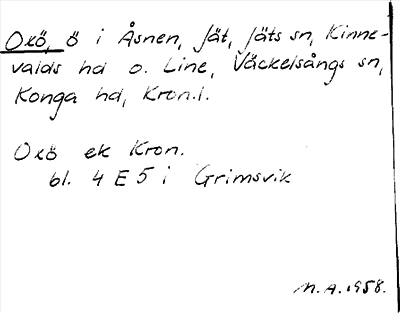 Oxö, ö i Åsnen, Jät, Jäts sn, Kinne-
valds hd o. Line, Väckelsångs sn,
Konga hd, Kron.l.
Oxö ek Kron.
bl. 4 E 5 i Grimsvik
M.A. 1958.